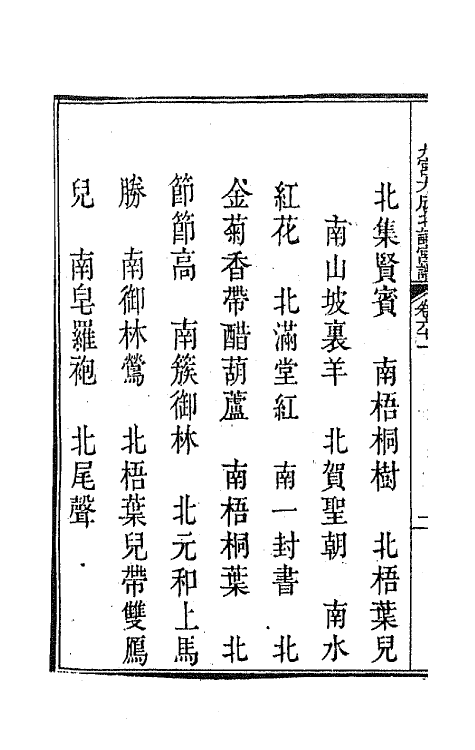 北集賢賓　南梧桐樹　北梧葉兒
南山坡裏羊　北賀聖朝　南水
紅花　北滿堂紅　南一封書　北
金菊香帶醋葫蘆　南梧桐葉　北
節節高　南簇御林　北元和上馬
勝　南御林鶯　北梧葉兒帶雙鴈
兒　南皂羅袍　北尾聲